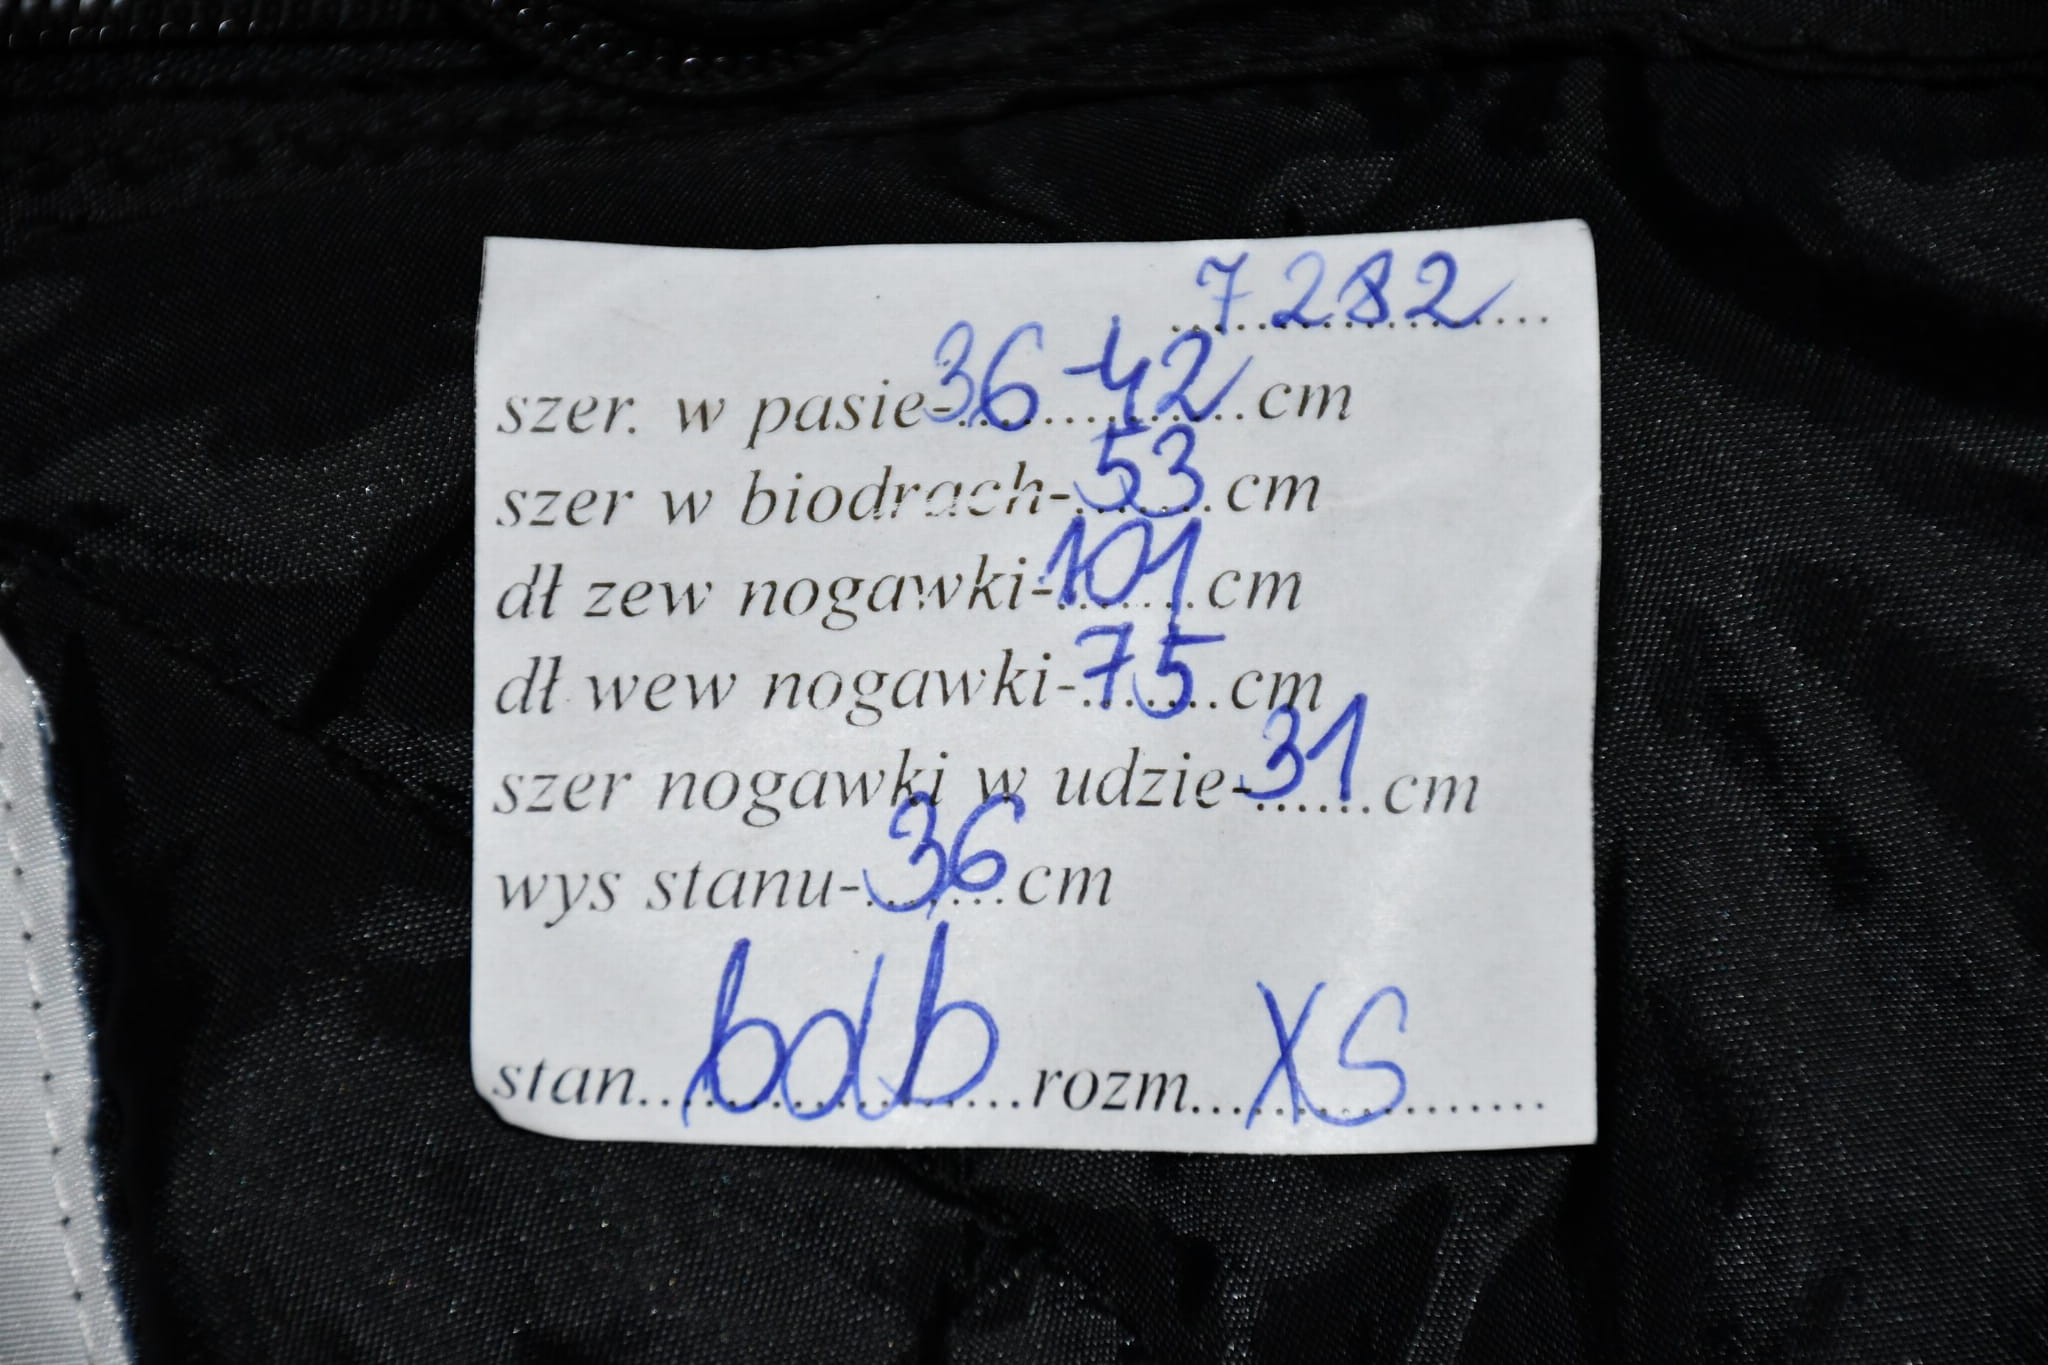 7282
szer. w pasie-36-42 cm
szer w biodrach-53 cm
dł zew nogawki-101 cm
dł wew nogawki-75 cm
szer nogawki w udzie-31 cm
wys stanu-36 cm
stan...bdb...rozm...XS...